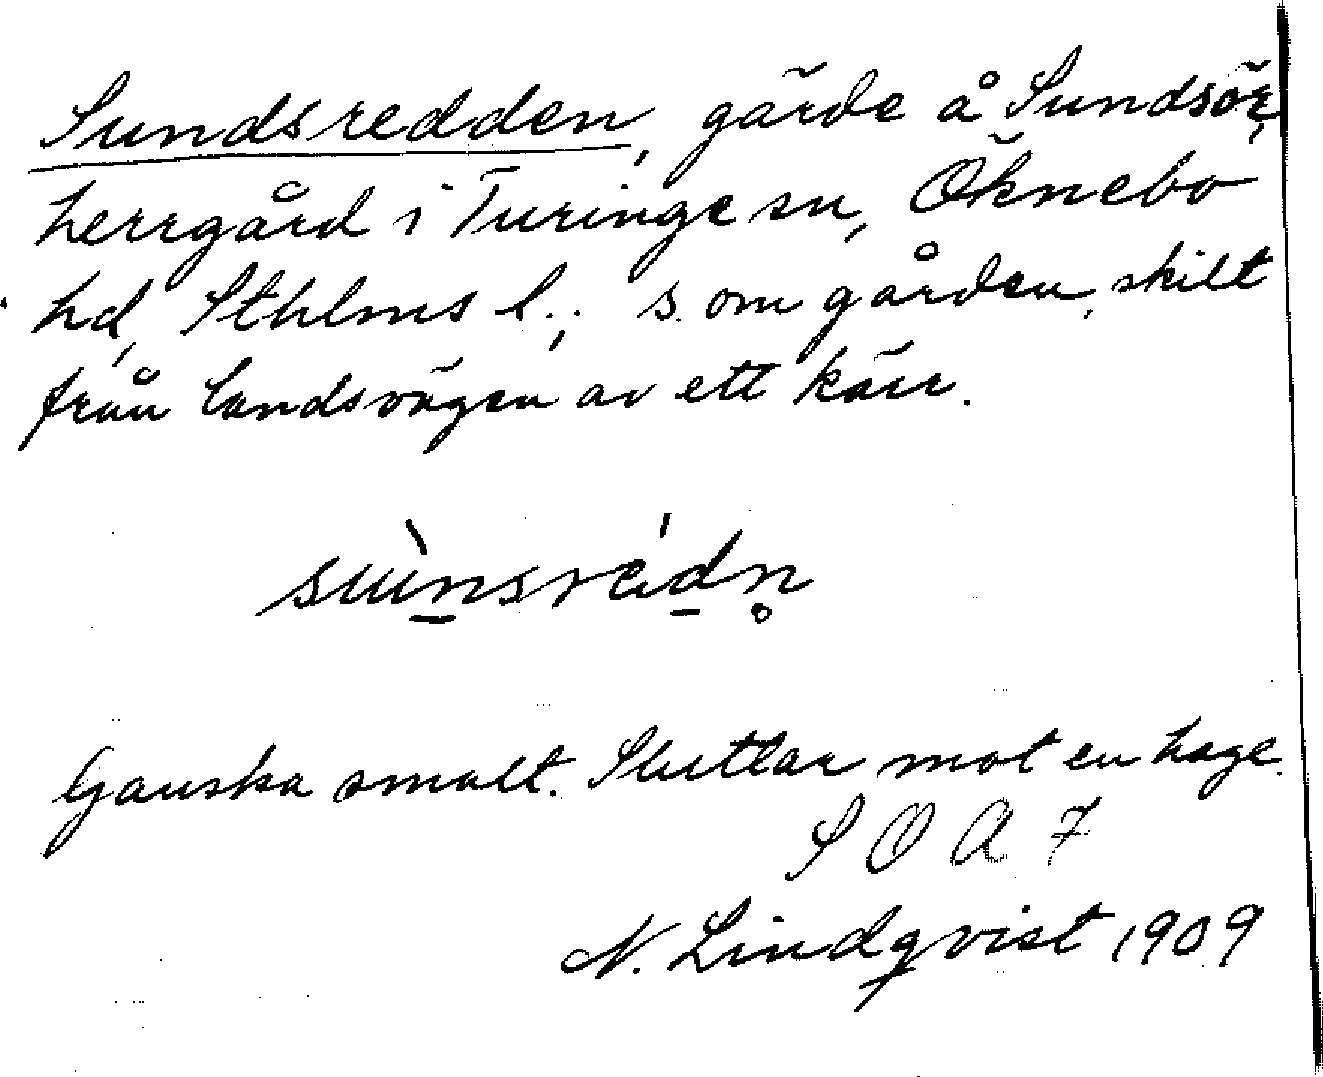 Sundsredden, gärde å Sundsör,
herrgård i Turinge sn, Öknebo
hd, Sthlms l.; s. om gården, skilt
från landsvägen av ett kärr.
sùnsrédn̥
Ganska smalt. Sluttar mot en hage.
S O A 7
N. Lindqvist 1909